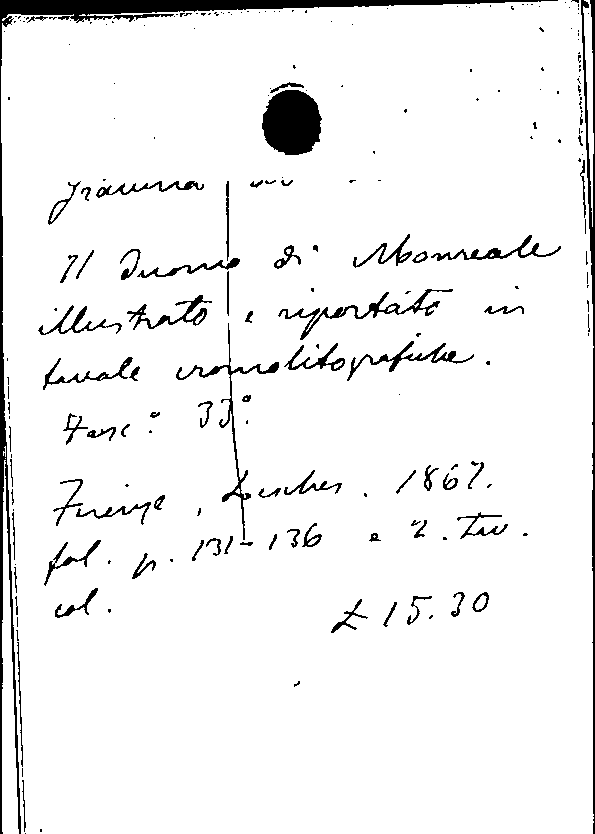 Gravina
Il Duomo di Monreale
illustrato e riportato in
tavole cromolitografiche.
Fasc.º 33º.
Firenze, Loescher. 1867.
fol. p. 131-136 e 2. Tav.
col.
£ 15.30